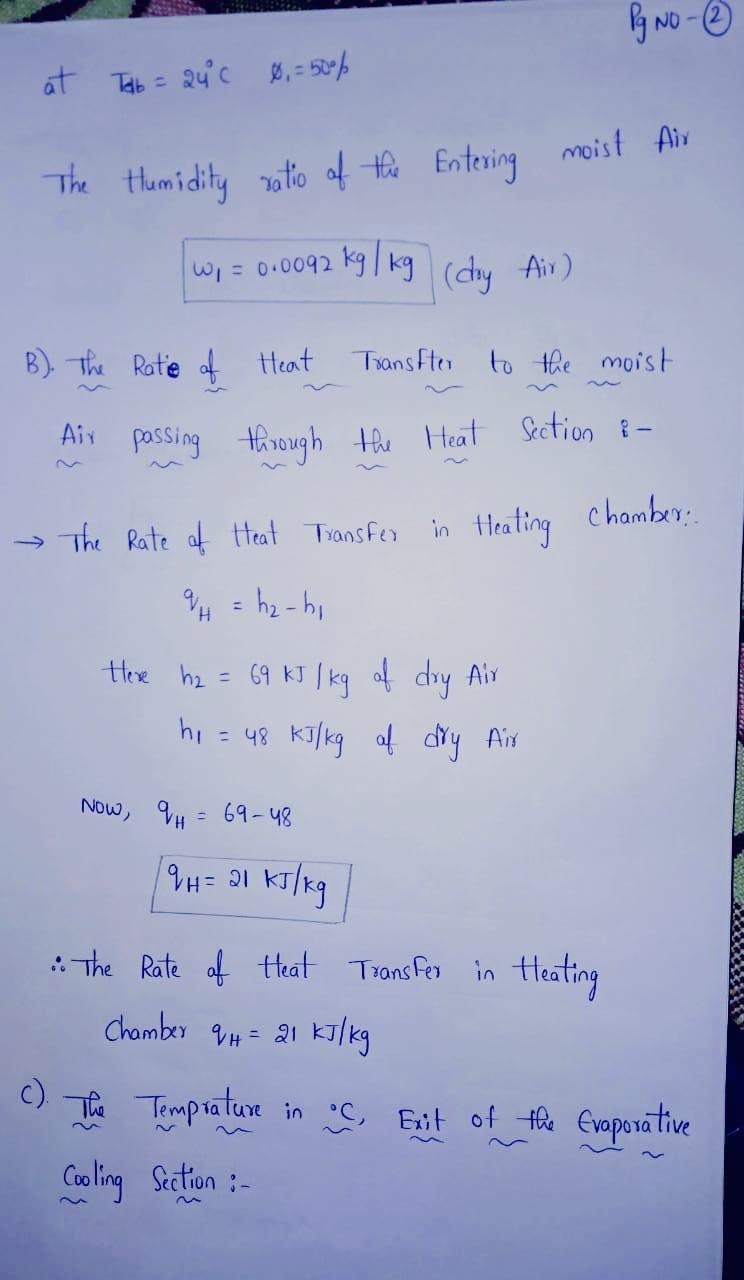 Pg NO - ②
at Tdb = 24°C Ø₁ = 50%
The Humidity ratio of the Entering moist Air
W₁ = 0.0092 kg/kg (dry Air)
B). The Rate of Heat Transfter to the moist
Air passing through the Heat Section :-
→ The Rate of Heat Transfer in Heating Chamber:.
qH = h₂ - h₁
Here h₂ = 69 KJ/kg of dry Air
h₁ = 48 KJ/kg of dry Air
Now, qH = 69 - 48
qH = 21 KJ/kg
∴ The Rate of Heat Transfer in Heating
Chamber qH = 21 KJ/kg
C). The Temprature in °C, Exit of the Evaporative
Cooling Section :-